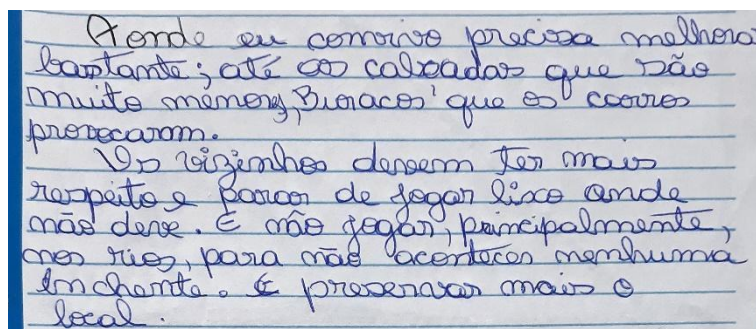 Aonde eu convivo precisa melhora
bastante; até as calçadas que são
muito menors, Buracos que os carros
provocaram.
Os vizinhos devem ter mais
respeito e parar de jogar lixo onde
não deve. E não jogar, principalmente,
nos rios, para não acontecer nenhuma
inchente. E preservar mais o
local.